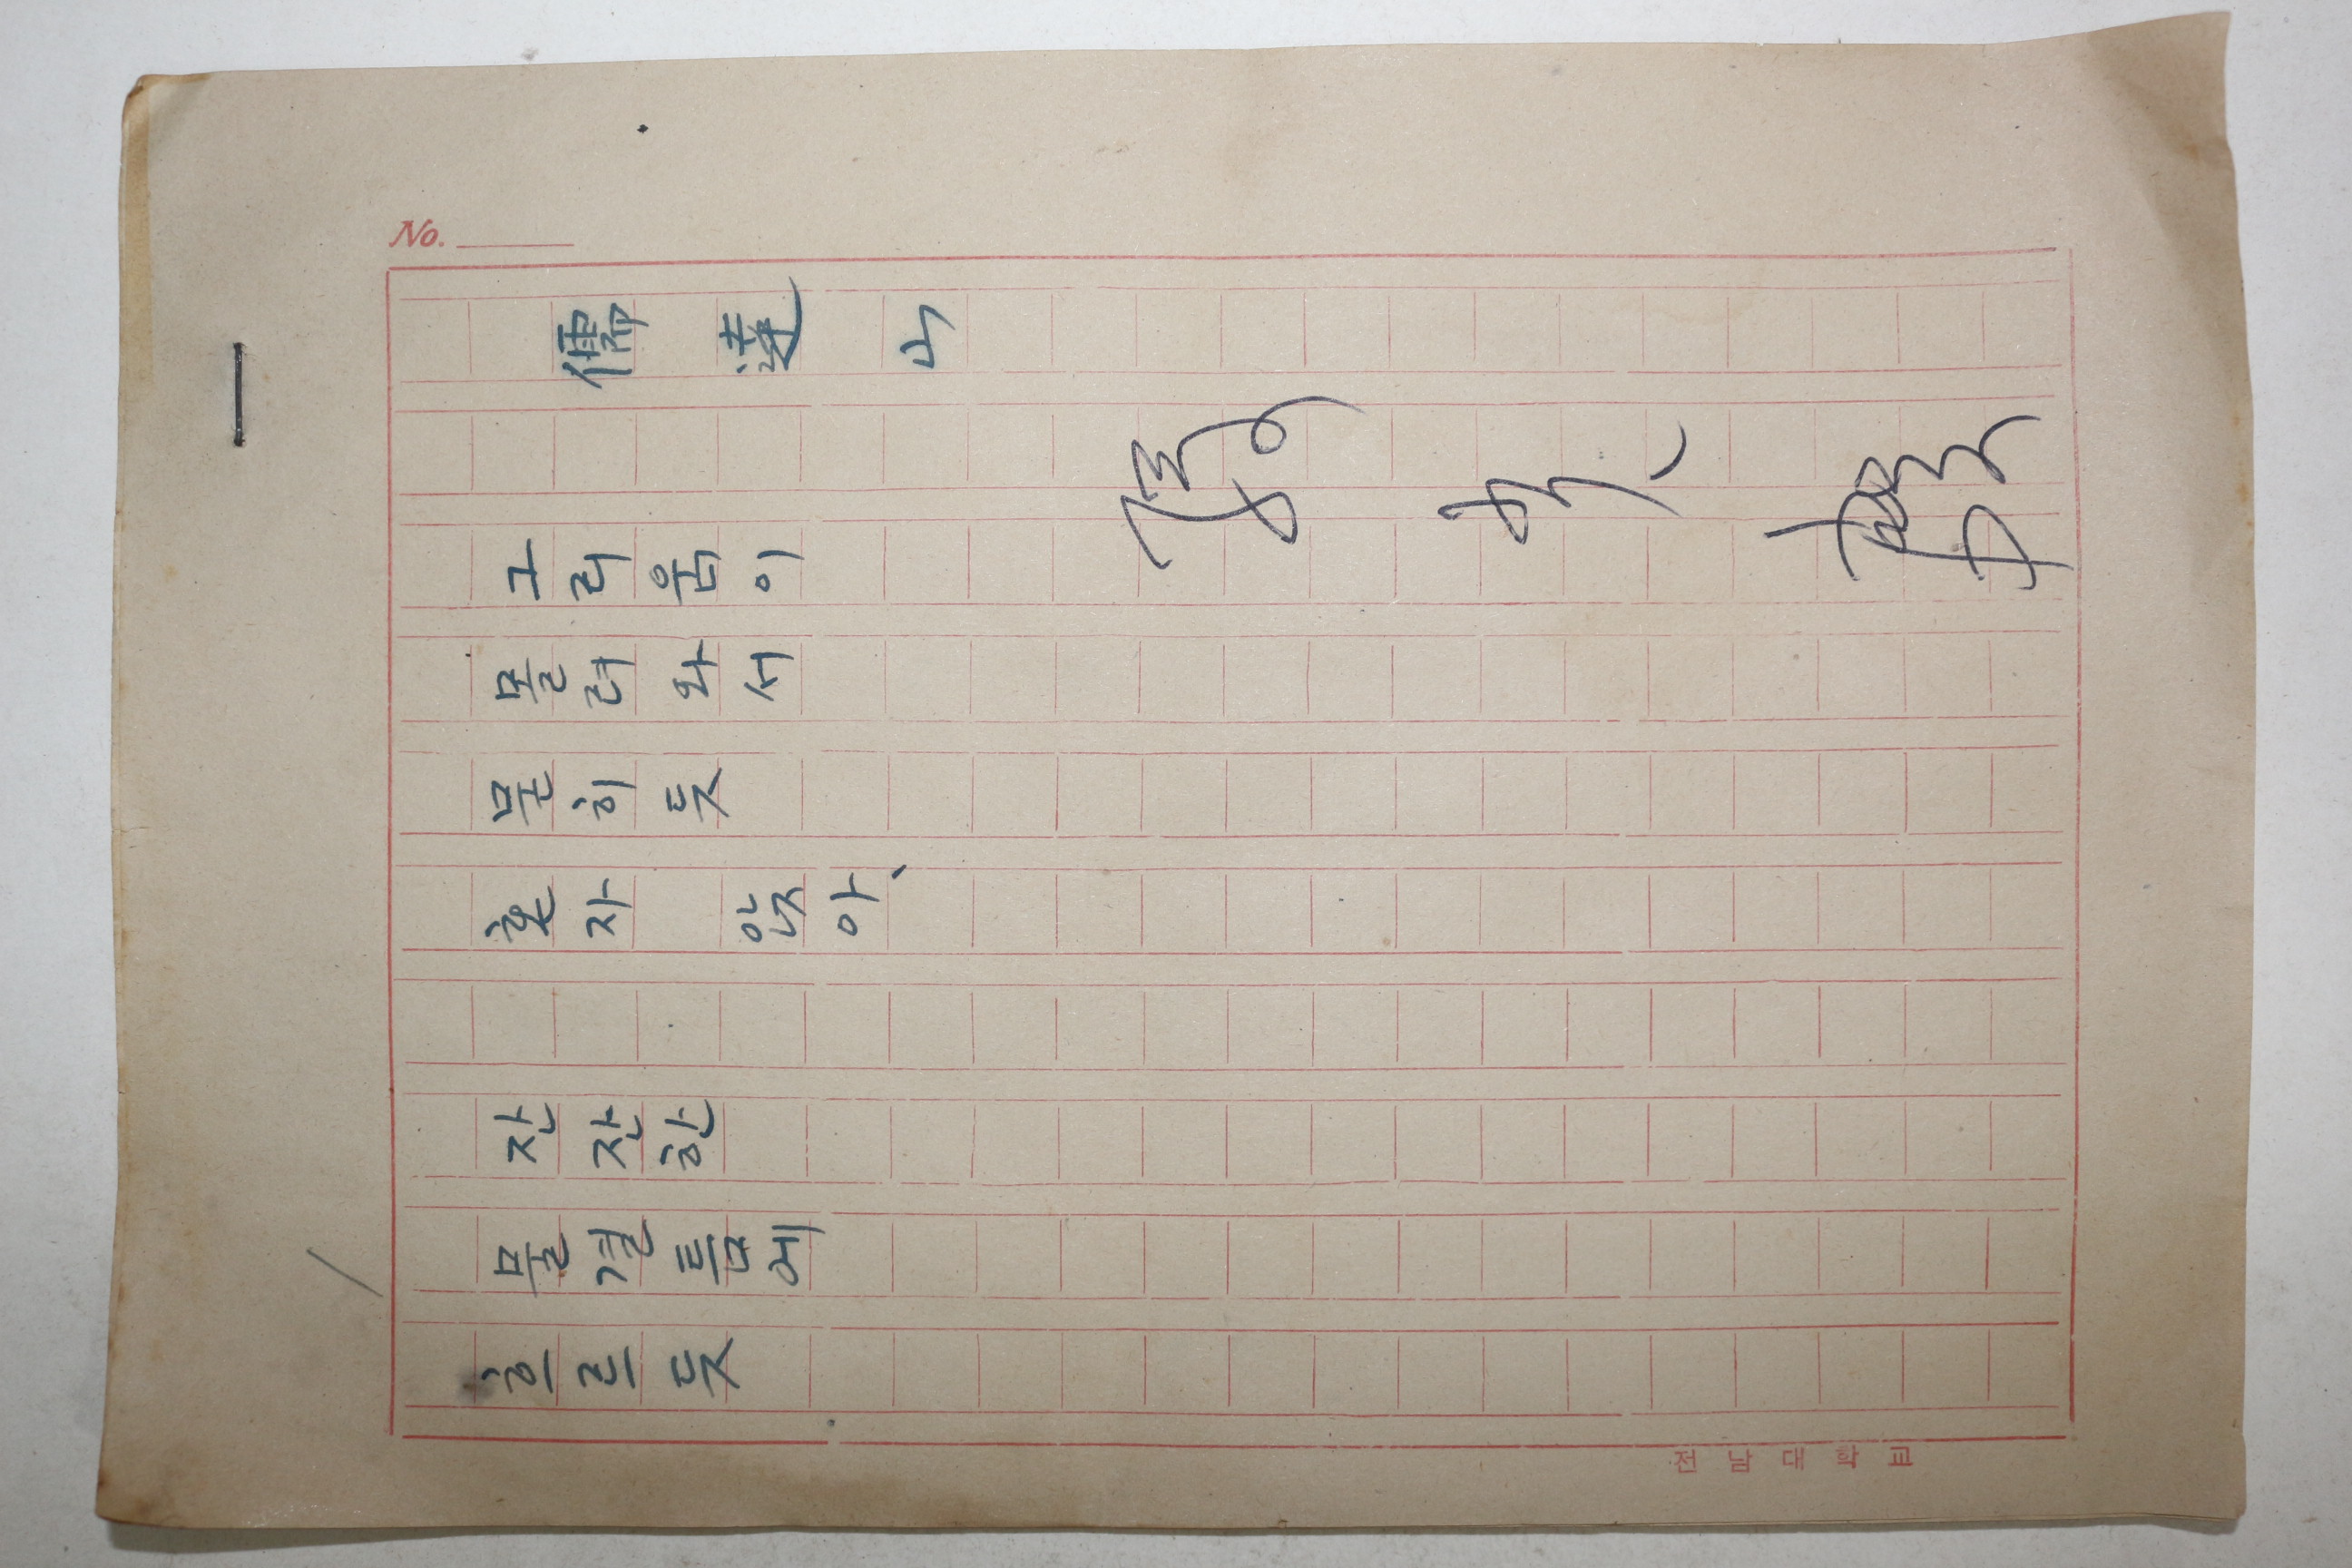 No.
儒達山
孫光殷
그리움이
몰려와서
묻히듯
혼자 앉아、
잔잔한
물결틈에
흐르듯
전남대학교